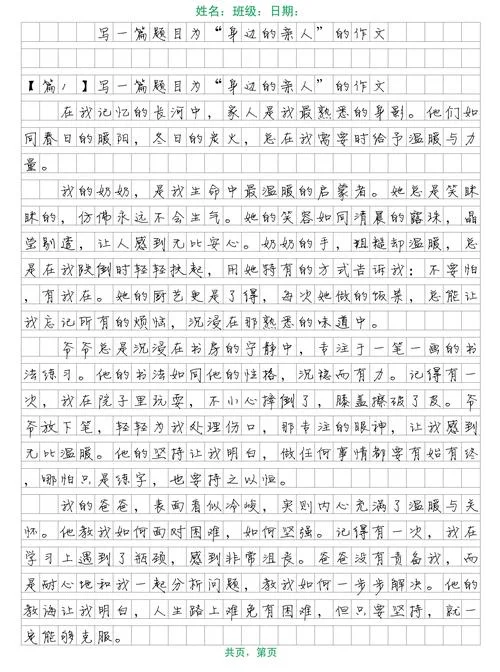 姓名：班级：日期：
写一篇题目为“身边的亲人”的作文
【篇1】写一篇题目为“身边的亲人”的作文
在我记忆的长河中，家人是我最熟悉的身影。他们如
同春日的暖阳，冬日的炭火，总在我需要时给予温暖与力
量。
我的奶奶，是我生命中最温暖的启蒙者。她总是笑眯
眯的，仿佛永远不会生气。她的笑容如同清晨的露珠，晶
莹剔透，让人感到无比安心。奶奶的手，粗糙却温暖，总
是在我跌倒时轻轻扶起，用她特有的方式告诉我：不要怕
，有我在。她的厨艺更是了得，每次她做的饭菜，总能让
我忘记所有的烦恼，沉浸在那熟悉的味道中。
爷爷总是沉浸在书房的宁静中，专注于一笔一画的书
法练习。他的书法如同他的性格，沉稳而有力。记得有一
次，我在院子里玩耍，不小心摔倒了，膝盖擦破了皮。爷
爷放下笔，轻轻为我处理伤口，那专注的眼神，让我感到
无比温暖。他的坚持让我明白，做任何事情都要有始有终
，哪怕只是练字，也要持之以恒。
我的爸爸，表面看似冷峻，实则内心充满了温暖与关
怀。他教我如何面对困难，如何坚强。记得有一次，我在
学习上遇到了瓶颈，感到非常沮丧。爸爸没有责备我，而
是耐心地和我一起分析问题，教我如何一步步解决。他的
教诲让我明白，人生路上难免有困难，但只要坚持，就一
定能够克服。
共页，第页